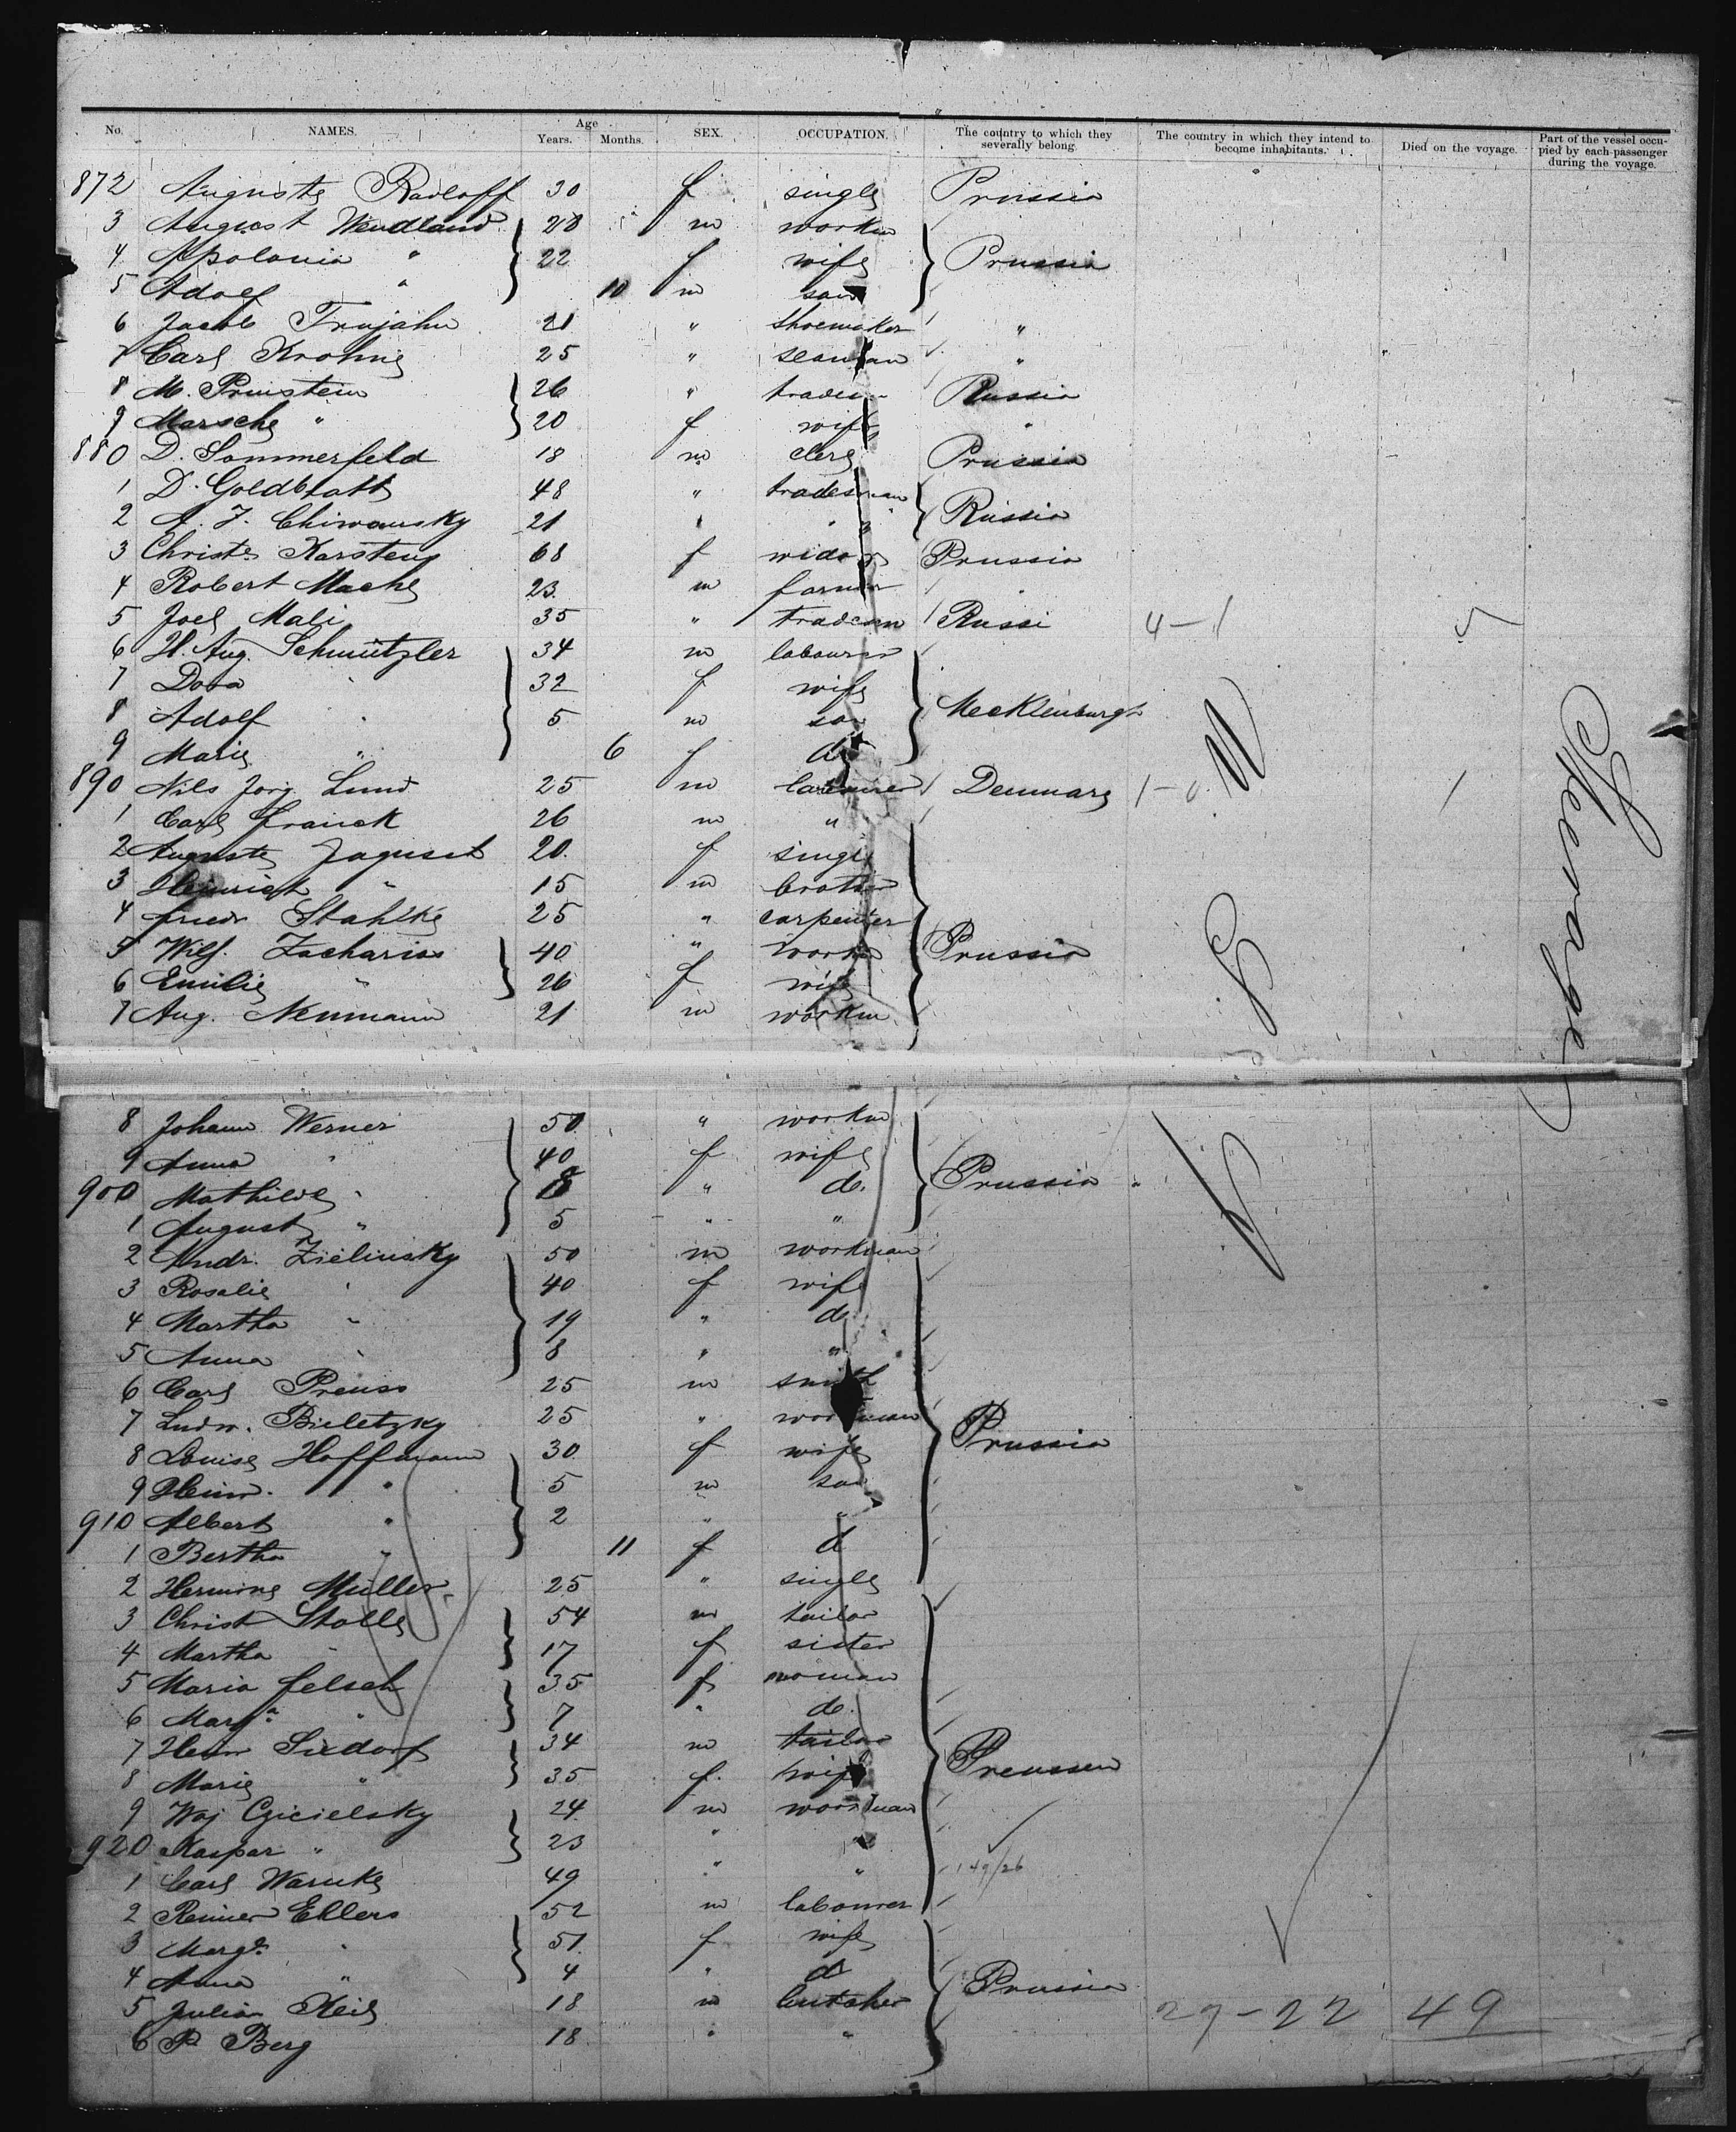 No. NAMES. Age Years. Months. SEX. OCCUPATION. The country to which they severally belong. The country in which they intend to become inhabitants. Died on the voyage. Part of the vessel occupied by each passenger during the voyage.
872 Auguste Radloff 30 f single Prussia
3 August Wendland 28 m workm
4 Apolonia " 22 f wife Prussia
5 Adolf " 10 m son
6 Jacob Trujahn 21 " shoemaker "
7 Carl Krohne 25 " seaman "
8 M. Prinstein 26 " Russia
9 Marsche " 20 f wife "
880 D. Sommerfeld 18 m clerk Prussia
1 D. Goldblatt 48 " tradesman
2 A. J. Chiwansky 21 " " Russia
3 Christe Karstens 68 f widow Prussia
4 Robert Mache 23 m farmer "
5 Joel Mali 35 " Russi 4-1 5
6 H. Aug. Schmützler 34 m labourer
7 Dora " 32 f wife Mecklenburgh
8 Adolf " 5 m son
9 Marie " 6 f d
890 Nils Jörg Lund 25 m labourer Denmark 1-0 1
1 Carl Franck 26 m "
2 Auguste Jagusch 20 f single
3 Heinrich " 15 m brother
4 Friedr Stahlke 25 " carpenter
5 Wilh. Zacharias 40 " workm Prussia
6 Emilie " 26 f wife
7 Aug. Neumann 21 m workm
Steerage
8 Johann Werner 50 " workm
9 Anna " 40 f wife
900 Mathilde " 8 " d. Prussia
1 August " 5 " "
2 Andr. Zielinsky 50 m workman
3 Rosalie " 40 f wife
4 Martha " 19 " d
5 Anna " 8 " "
6 Carl Preuss 25 m smith
7 Ludw. Bieletzky 25 " workman Prussia
8 Louise Hoffmann 30 f wife
9 Heinr. " 5 m son
910 Albert " 2 " "
1 Bertha " 11 f d
2 Hermine Müller 25 " single
3 Christ Stolle 54 m tailor
4 Martha " 17 f sister
5 Maria Felsch 35 f woman
6 Marga " 7 " d.
7 Heinr Sixdorf 34 m tailor
8 Marie " 35 f. wife Preussen
9 Woj Czicielsky 24 m workman
920 Kaspar " 23 " "
1 Carl Warnke 49 " " 149/26
2 Reimer Ehlers 52 m labourer
3 Marge " 51 f wife
4 Anna " 4 " d Prussia
5 Julian Keil 18 m butcher 27-22 49
6 P Berg 18 " "